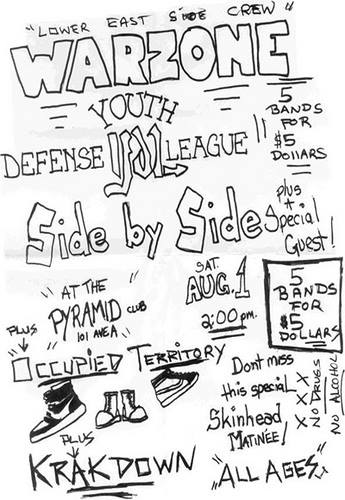 "LOWER EAST SIDE CREW"
WARZONE
YOUTH
DEFENSE YDL LEAGUE
5
BANDS
FOR
$5
DOLLARS
Side by Side
plus
+
Special
Guest!
"AT THE
PYRAMID CLUB
101 AVE A"
SAT.
AUG. 1
2:00 pm.
5
BANDS
FOR
$5
DOLLARS
PLUS
"OCCUPIED TERRITORY
Dont miss
this special
Skinhead
MATINÉE!
X X X
NO DRUGS
NO ALCOHOL
PLUS
KRAKDOWN
"ALL AGES"